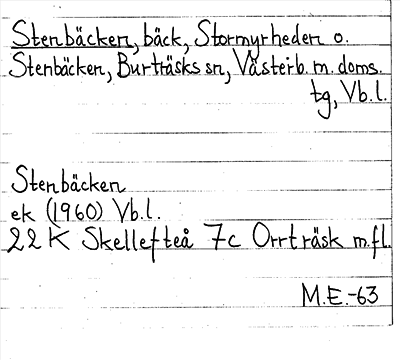 Stenbäcken, bäck, Stormyrheden o.
Stenbäcken, Burträsks sn, Västerb. m. doms.
tg, Vb. l.
Stenbäcken
ek (1960) Vb. l.
22 K Skellefteå 7c Orrträsk m.fl.
M.E.-63